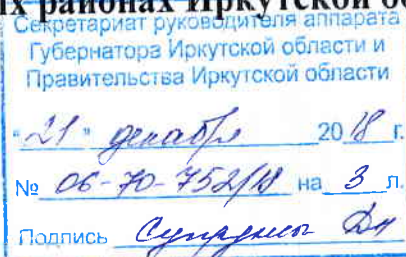 их районах Иркутской об
Секретариат руководителя аппарата
Губернатора Иркутской области и
Правительства Иркутской области
"21" декабря 2018 г.
№ 06-70-752/18 на 3 л.
Подпись